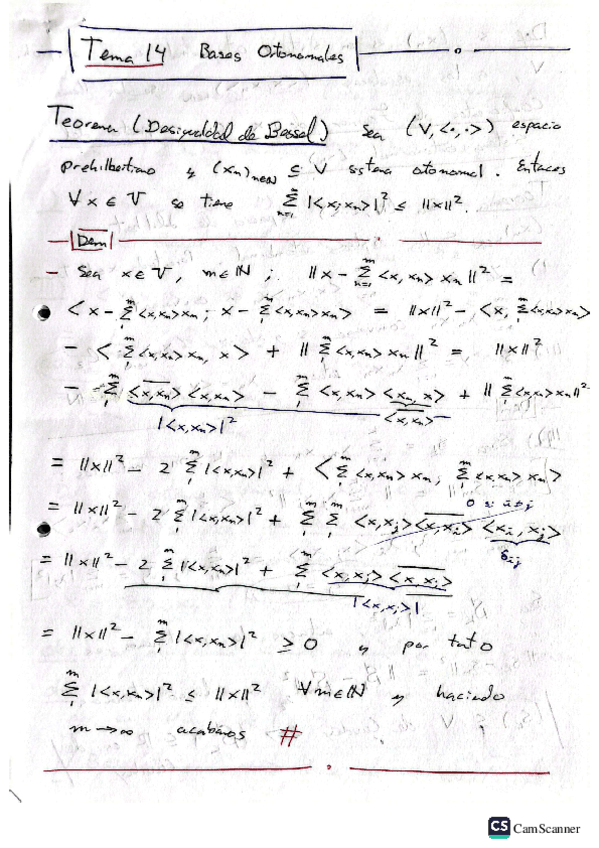 Tema 14 Bases Ortonormales
Teorema (Desigualdad de Bessel) Sea (V, <·,·>) espacio
prehilbertiano y (xn)n∈N ⊆ V sistema ortonormal. Entonces
∀x ∈ V se tiene ∑_{n=1}^∞ |<x, xn>|² ≤ ||x||².
Dem
- Sea x ∈ V, m ∈ ℕ; ||x - ∑_{n=1}^m <x, xn> xn||² =
< x - ∑_1^m <x,xn>xn ; x - ∑_1^m <x,xn>xn > = ||x||² - <x, ∑_1^m <x,xn>xn>
- < ∑_1^m <x,xn>xn, x > + || ∑_1^m <x,xn>xn ||² = ||x||²
- ∑_1^m \overline{<x,xn>} <x,xn> - ∑_1^m <x,xn> <xn,x> + || ∑_1^m <x,xn>xn ||²
|<x,xn>|² \overline{<x,xn>}
= ||x||² - 2 ∑_1^m |<x,xn>|² + < ∑_1^m <x,xn>xn, ∑_1^m <x,xn>xn >
0 si i≠j
= ||x||² - 2 ∑_1^m |<x,xn>|² + ∑_1^m ∑_1^m <x,xj> \overline{<x,xi>} <xi,xj>
δij
= ||x||² - 2 ∑_1^m |<x,xn>|² + ∑_1^m <x,xj> \overline{<x,xj>}
|<x,xj>|
= ||x||² - ∑_1^m |<x,xn>|² ≥ 0 y por tanto
∑_1^m |<x,xn>|² ≤ ||x||² ∀m∈ℕ y haciendo
m → ∞ acabamos #
CS CamScanner